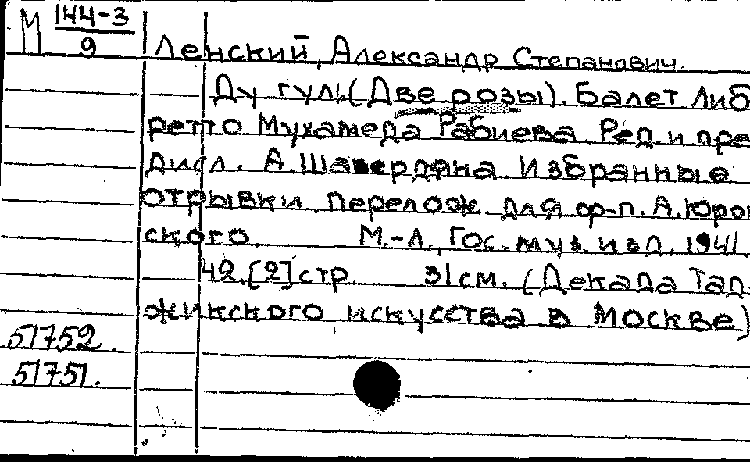 М 144-3
9
Ленский, Александр Степанович.
Ду гуль (Две розы). Балет Либ
ретто Мухамеда Рабиева. Ред. и пре
дисл. А. Шавердяна. Избранные
отрывки перелож. для ф-п. А. Юров
ского. М.-Л., Гос. муз. изд. 1941.
42.[2]стр. 31см. (Декада Тад
жикского искусства в Москве)
51752.
51751.